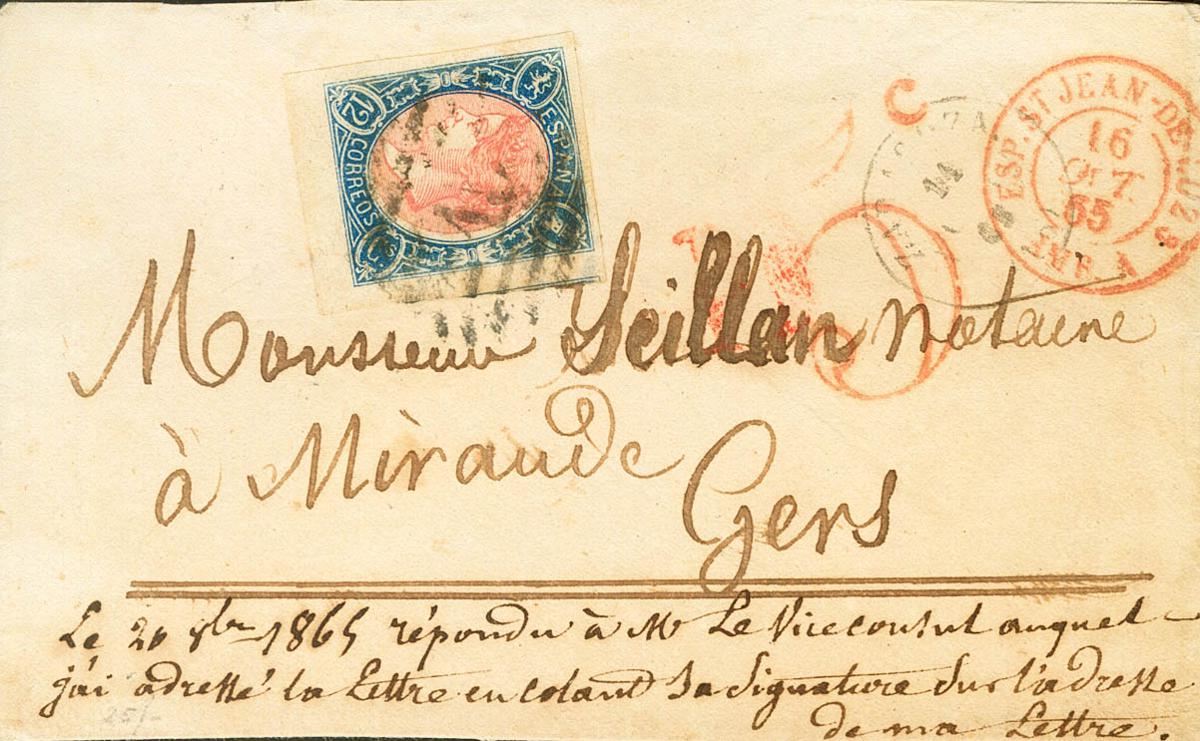 12 ESPAÑA
CORREOS
C
ZARAGOZA
14
ESP. ST JEAN-DE-LUZ
16
OCT
65
Monsieur Seillan Notaire
à Mirande
Gers
Le 20 8bre 1865 répondu à Mr Le Vice consul auquel
j'ai adressé la Lettre en colant sa signature sur l'adresse
de ma Lettre.
25/-